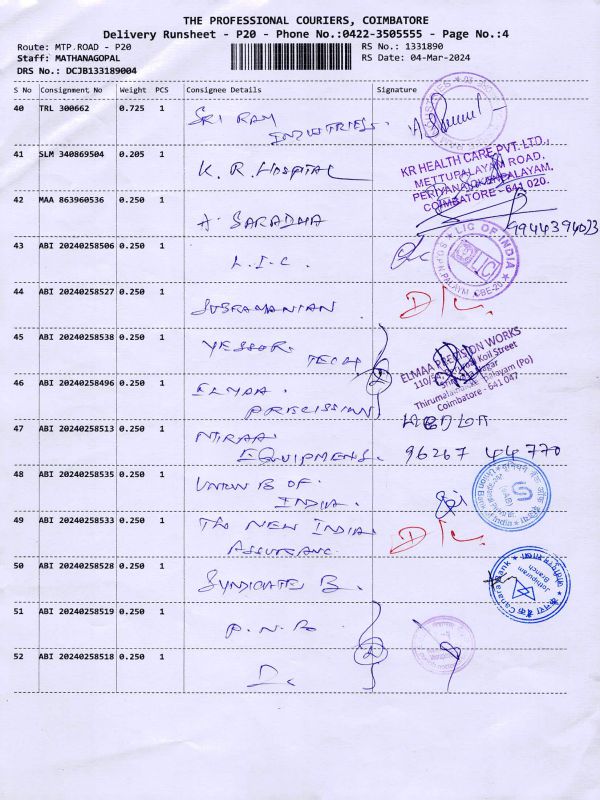 THE PROFESSIONAL COURIERS, COIMBATORE
Delivery Runsheet - P20 - Phone No.:0422-3505555 - Page No.:4
Route: MTP.ROAD - P20
RS No.: 1331890
Staff: MATHANAGOPAL
RS Date: 04-Mar-2024
DRS No.: DCJB133189004
S No Consignment No Weight PCS Consignee Details Signature
40 TRL 300662 0.725 1 SRI RAM
INDUSTRIES.
41 SLM 340869504 0.205 1 K. R. HOSPITAL
KR HEALTH CARE PVT. LTD.,
METTUPALAYAM ROAD,
PERIYANAICKENPALAYAM,
COIMBATORE - 641 020.
42 MAA 863960536 0.250 1 A. SARADHA
9944394033
43 ABI 20240258506 0.250 1 L.I.C.
LIC OF INDIA
LIC
CBE-20
44 ABI 20240258527 0.250 1 SUBRAMANIAN
D/L
45 ABI 20240258538 0.250 1 YESSOR.
TECH
ELMAA PRECISION WORKS
Koil Street
Thirumalainaicken Palayam (Po)
Coimbatore - 641 047
46 ABI 20240258496 0.250 1 ELMAA.
PRECISSION
47 ABI 20240258513 0.250 1 NIRAA
EQUIPMENS.
96267 44770
48 ABI 20240258535 0.250 1 UNION B OF.
INDIA.
49 ABI 20240258533 0.250 1 THE NEW INDIA
ASSURANC.
D/L
50 ABI 20240258528 0.250 1 SYNDICATE B.
Canara Bank
केनरा बैंक
Branch
51 ABI 20240258519 0.250 1 P.N.B
52 ABI 20240258518 0.250 1 Do